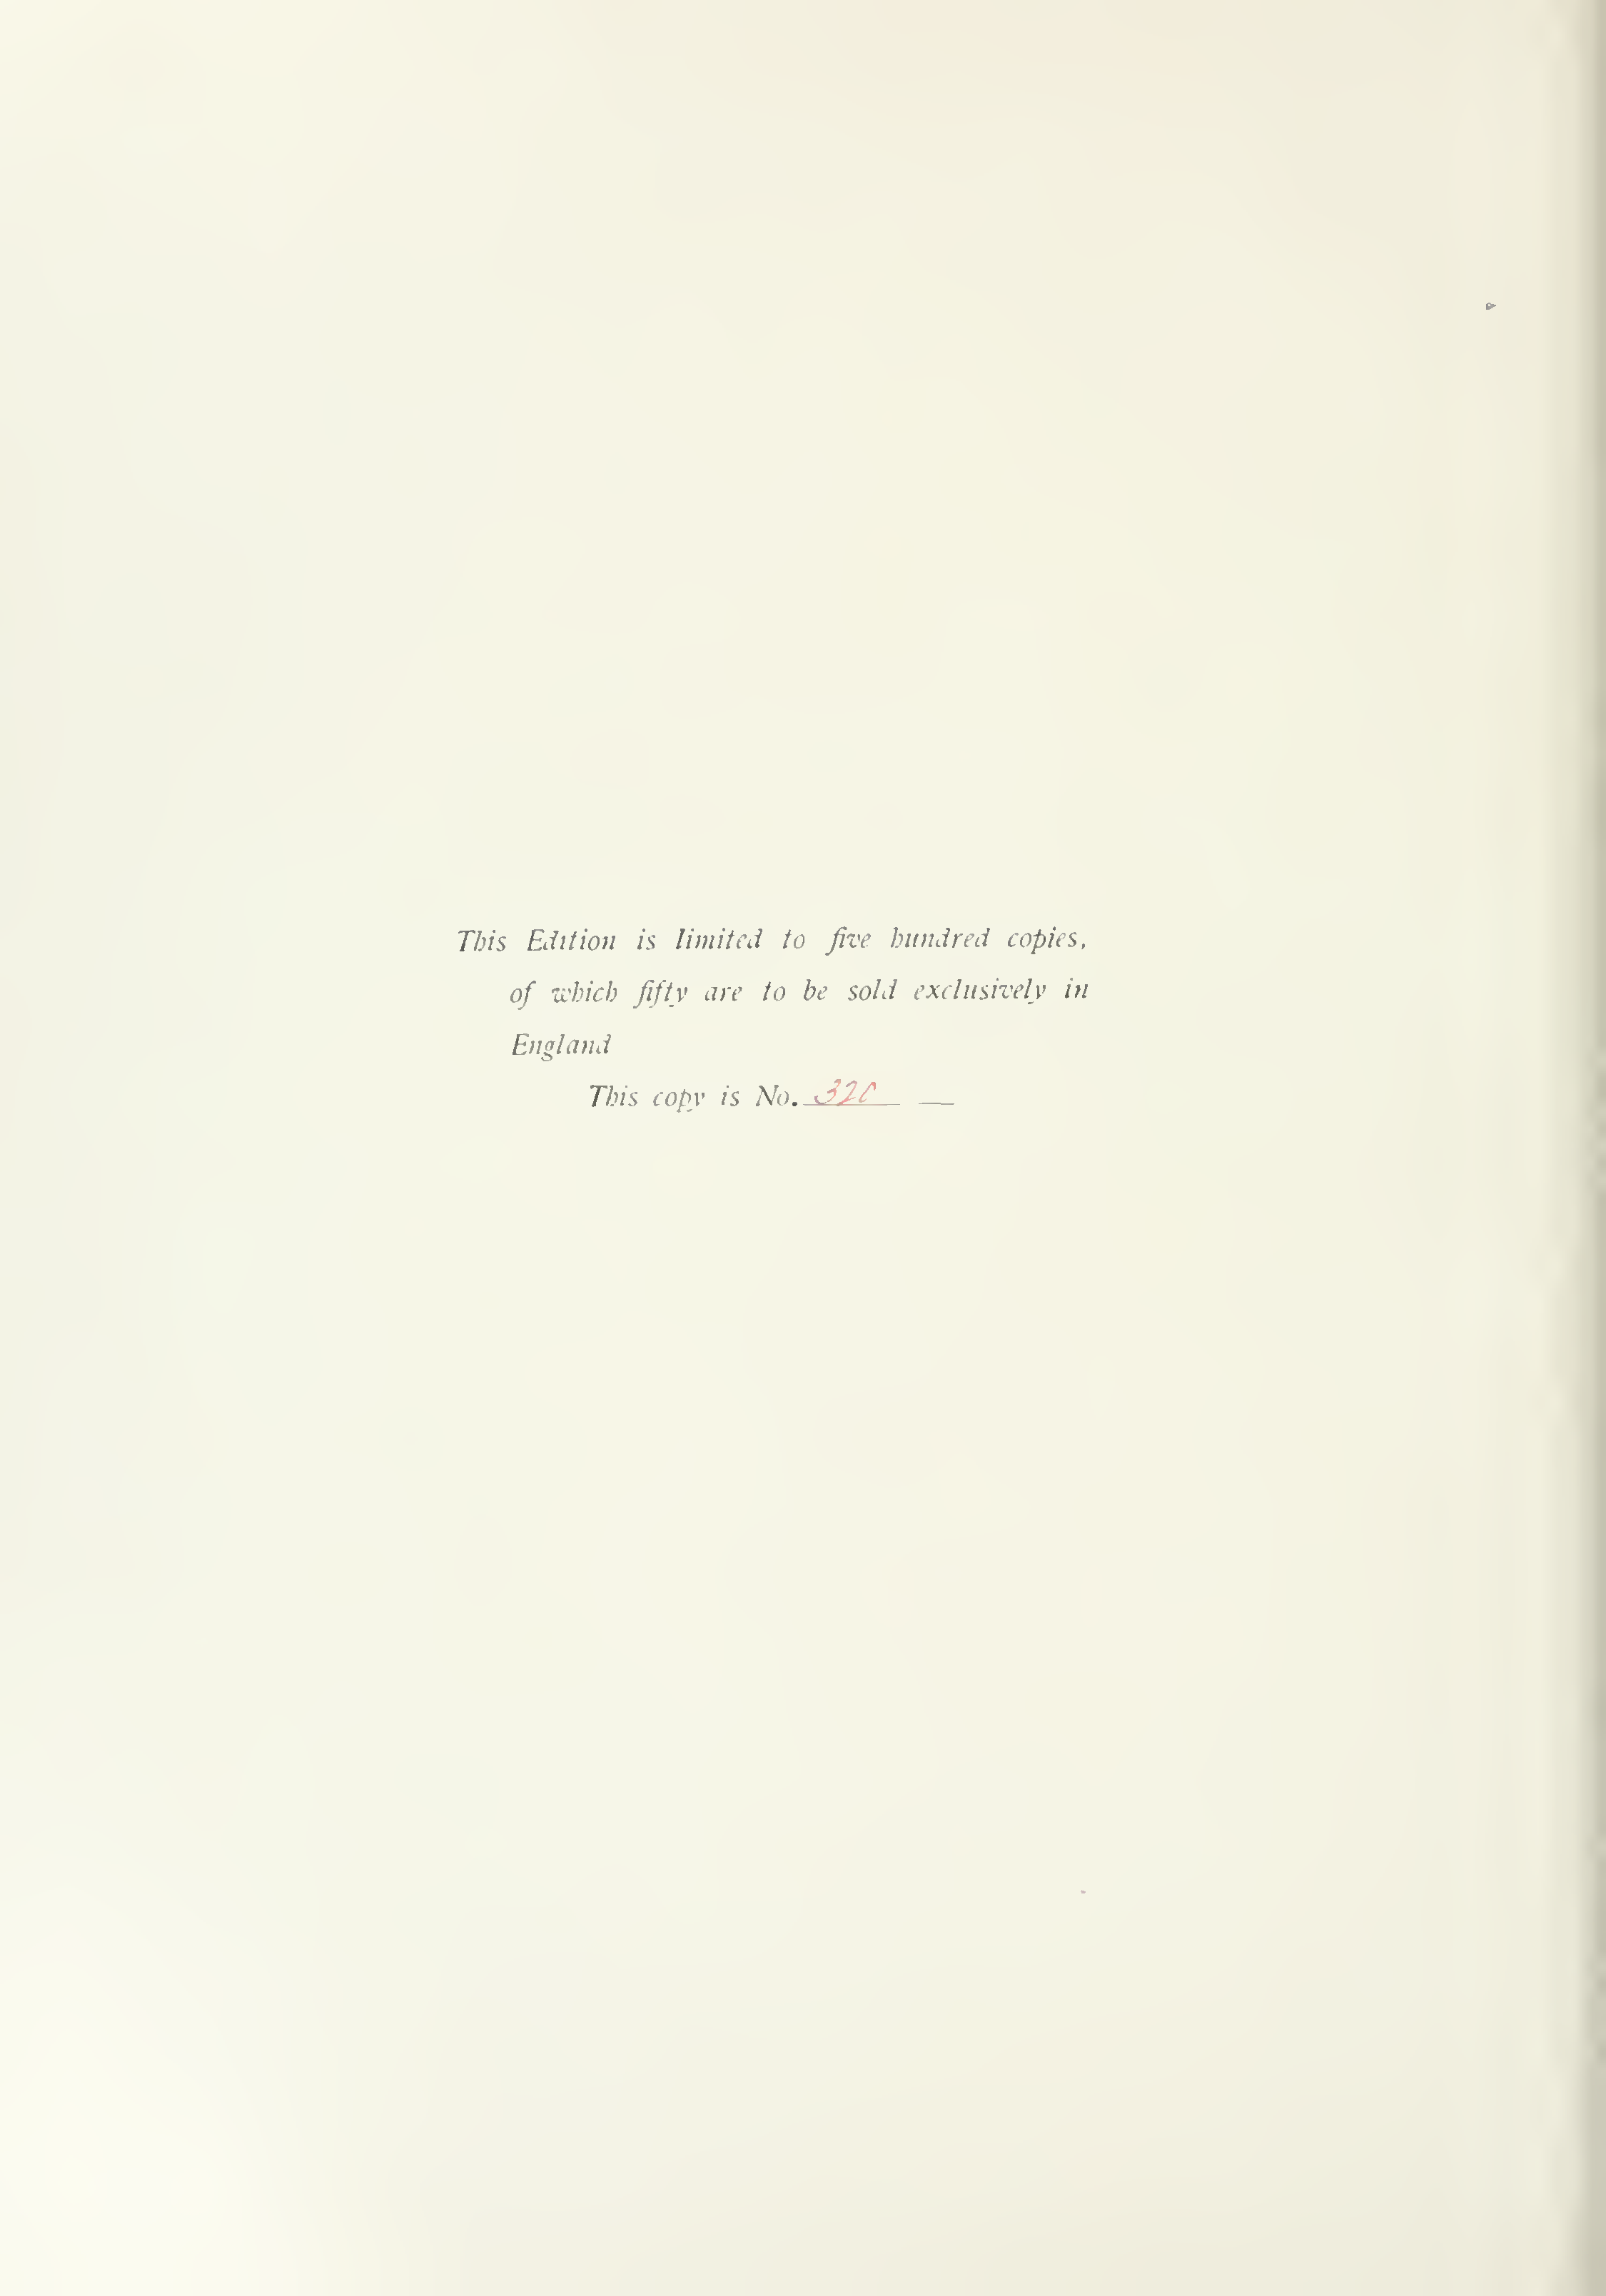 This Edition is limited to five hundred copies,
of which fifty are to be sold exclusively in
England
This copy is No.